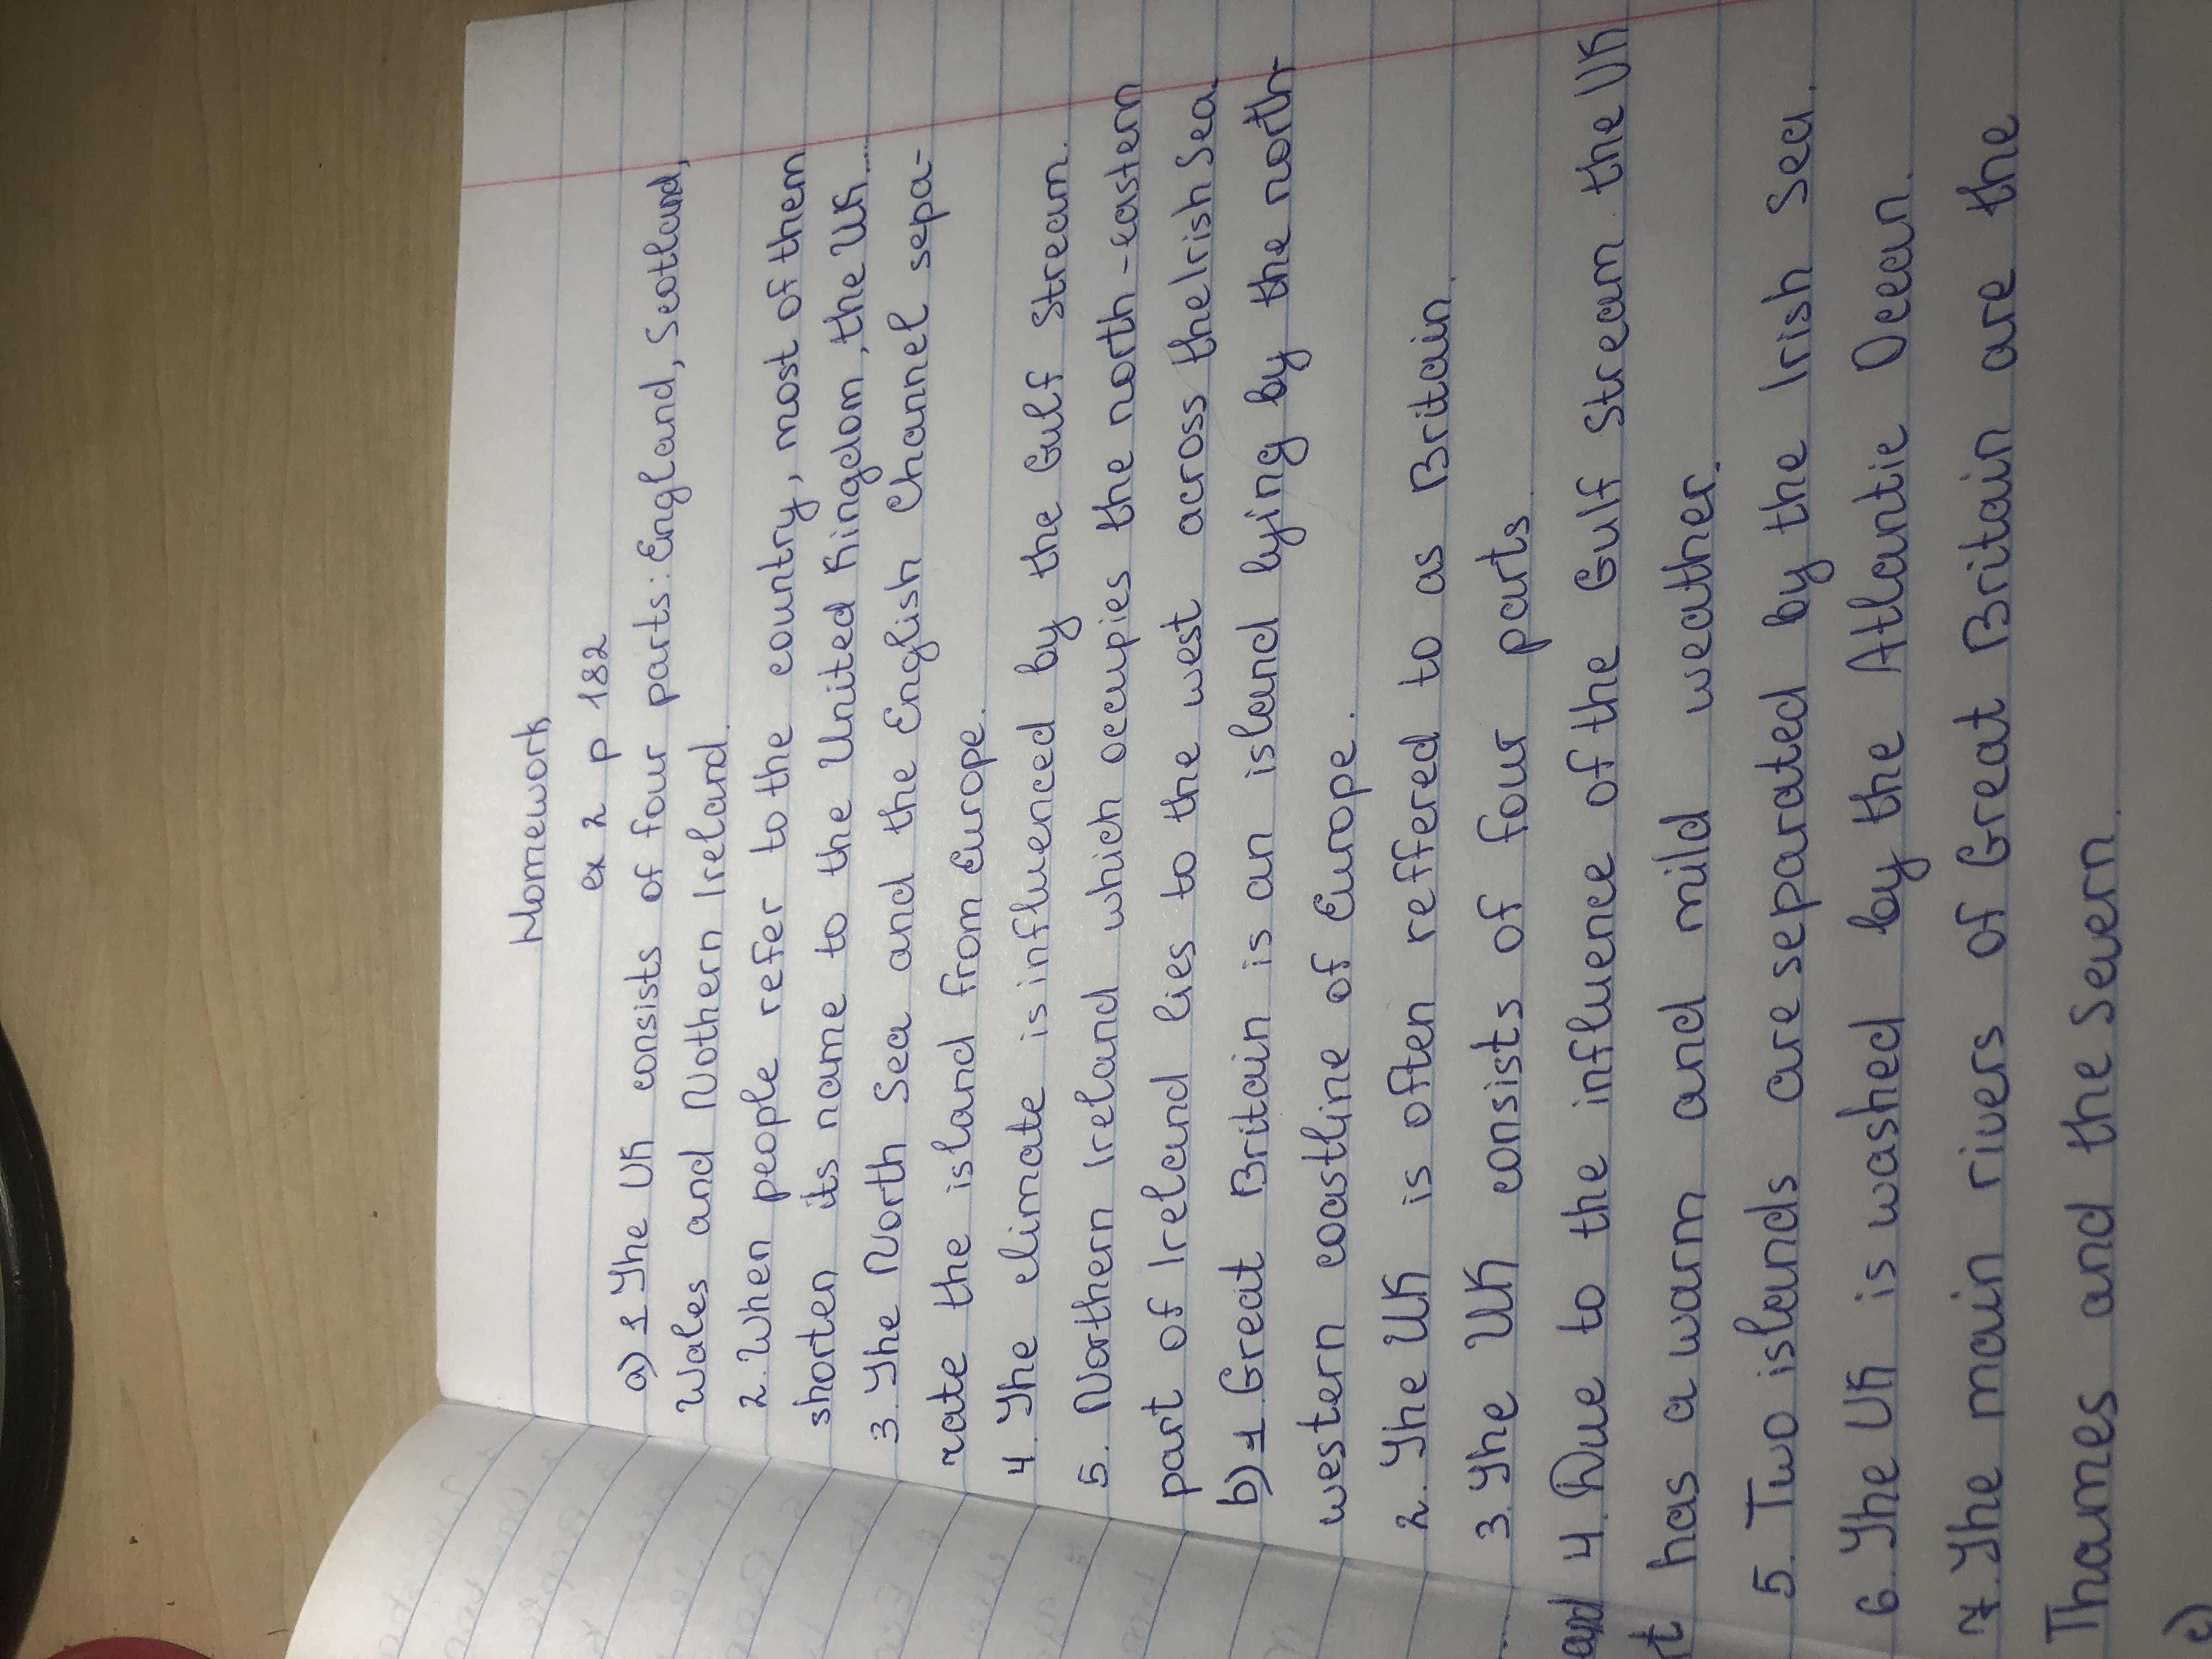 Homework
ex 2 p 182
a) 1 The UK consists of four parts: England, Scotland,
Wales and Nothern Ireland.
2. When people refer to the country, most of them
shorten its name to the United Kingdom, the UK...
3 The North Sea and the English Channel sepa-
rate the island from Europe.
4 The climate is influenced by the Gulf Stream.
5. Northern Ireland which occupies the north-eastern
part of Ireland lies to the west across the Irish Sea
b) 1 Great Britain is an island lying by the north-
western coastline of Europe.
2. The UK is often reffered to as Britain.
3. The UK consists of four parts
4. Due to the influence of the Gulf Stream the UK
has a warm and mild weather.
5. Two islands are separated by the Irish Sea.
6 The UK is washed by the Atlantic Ocean.
7. The main rivers of Great Britain are the
Thames and the Severn.
c)